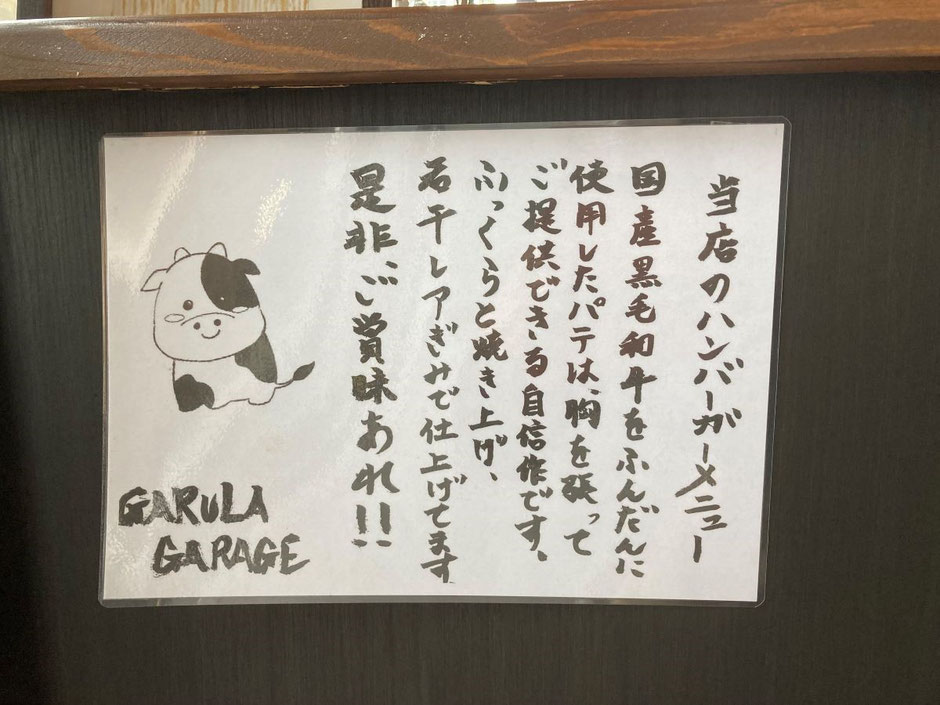 当店のハンバーガーメニュー
国産黒毛和牛をふんだんに
使用したパテは、胸を張って
ご提供できる自信作です、
ふっくらと焼き上げ、
若干レアぎみで仕上げてます
是非、ご賞味あれ!!
GARULA
GARAGE